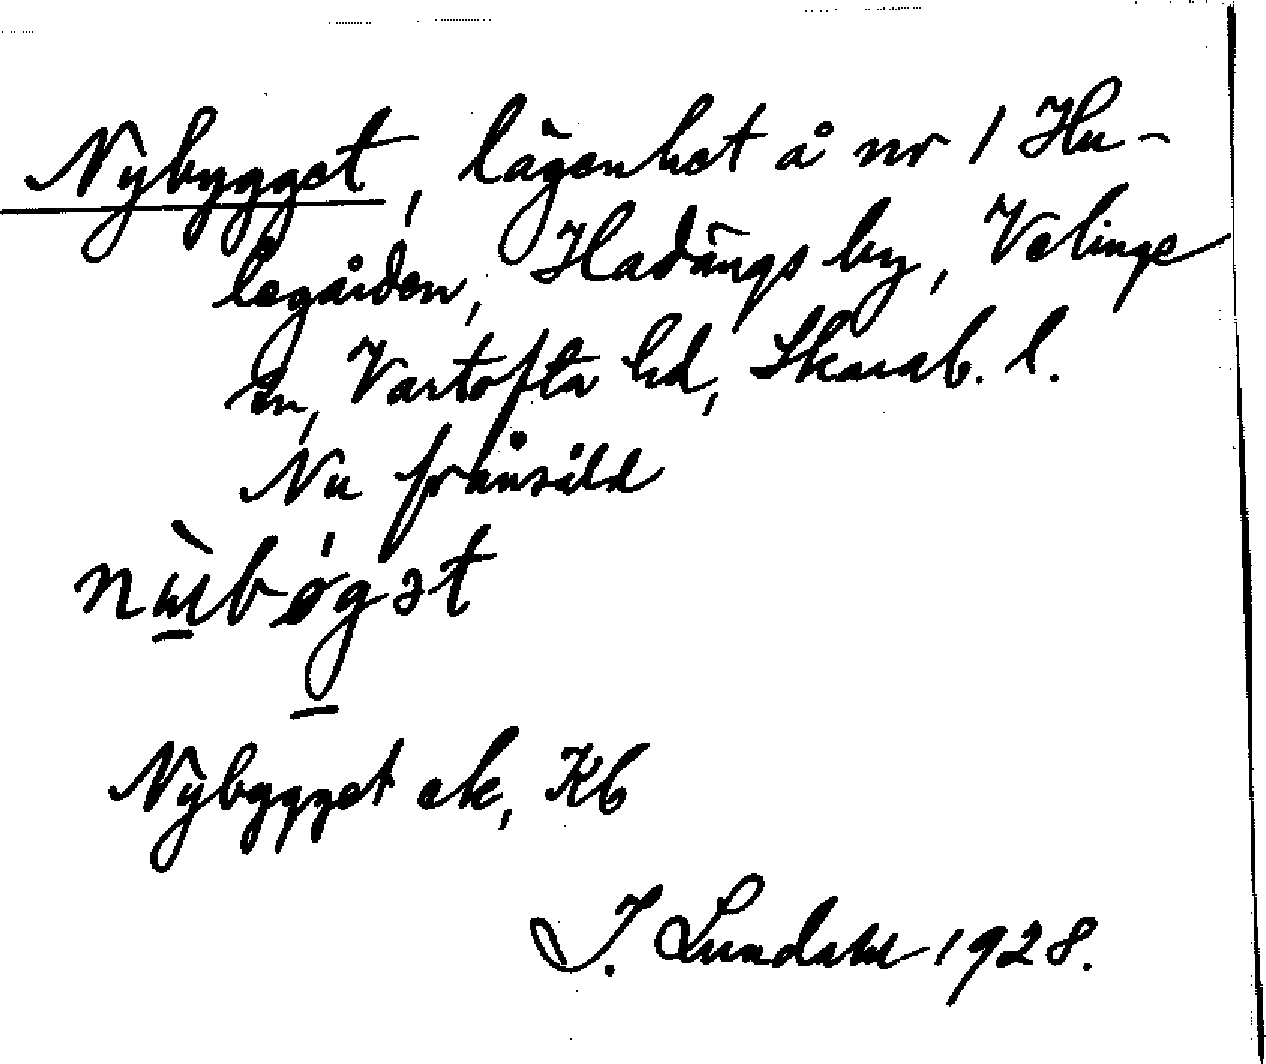 Nybygget, lägenhet å nr 1 Hu-
legården, Hadängs by, Velinge
sn, Vartofta hd, Skarab. l.
Nu frånsåld
nỳbǿgət
Nybygget ek, Kb
I. Lundahl 1928.